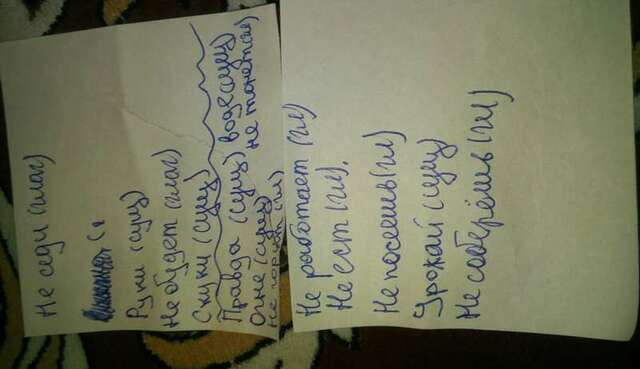 Не сиди (глаг)
Руки (сущ)
Не будет (глаг)
Скуки (сущ)
Правда (сущ) воде(сущ)
Огне (сущ) не тонет(гл)
Не горит (гл)
Не работает (гл)
Не ест (гл).
Не посеешь (гл)
Урожай (сущ)
Не соберёшь (гл)